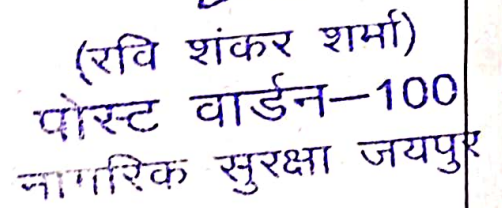 (रवि शंकर शर्मा)
पोस्ट वार्डन—100
नागरिक सुरक्षा जयपुर